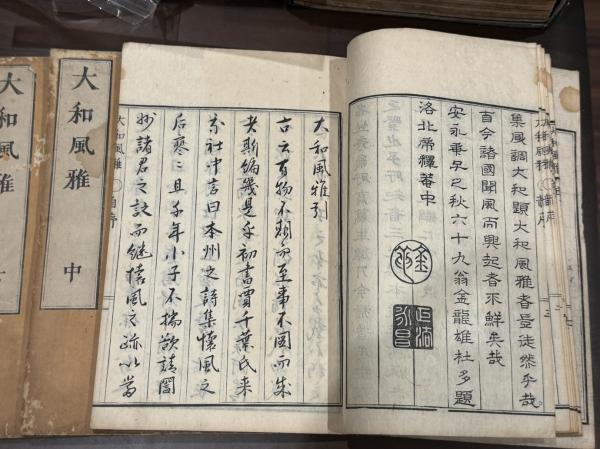 集風調大和題大和風雅者豈徒然乎哉
自今諸國聞風而興起者不鮮矣哉
安永之秋六十九翁金龍雄杜多題
洛北帰釋菴中
大和風雅引
古云百物不期而至事不図而成
者斯編幾是乎初書賈千葉氏来
余社中言曰本州之詩集懐風之
后寥々且千年小子不揣欲請閤
妙諸君之詠而継懐風之跡以当
大和風雅 〇自序
大和風雅 中
大和風雅